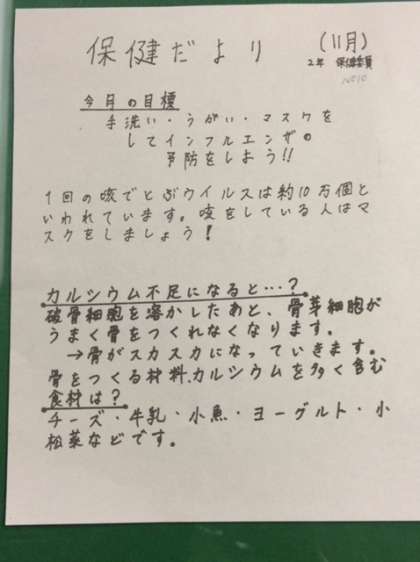 保健だより
(11月)
2年 保健委員
No10
今月の目標
手洗い・うがい・マスクを
してインフルエンザの
予防をしよう!!
1回の咳でとぶウイルスは約10万個と
いわれています。咳をしている人はマ
スクをしましょう!
カルシウム不足になると…?
破骨細胞を溶かしたあと、骨芽細胞が
うまく骨をつくれなくなります。
→骨がスカスカになっていきます。
骨をつくる材料、カルシウムを多く含む
食材は?
チーズ・牛乳・小魚・ヨーグルト・小
松菜などです。